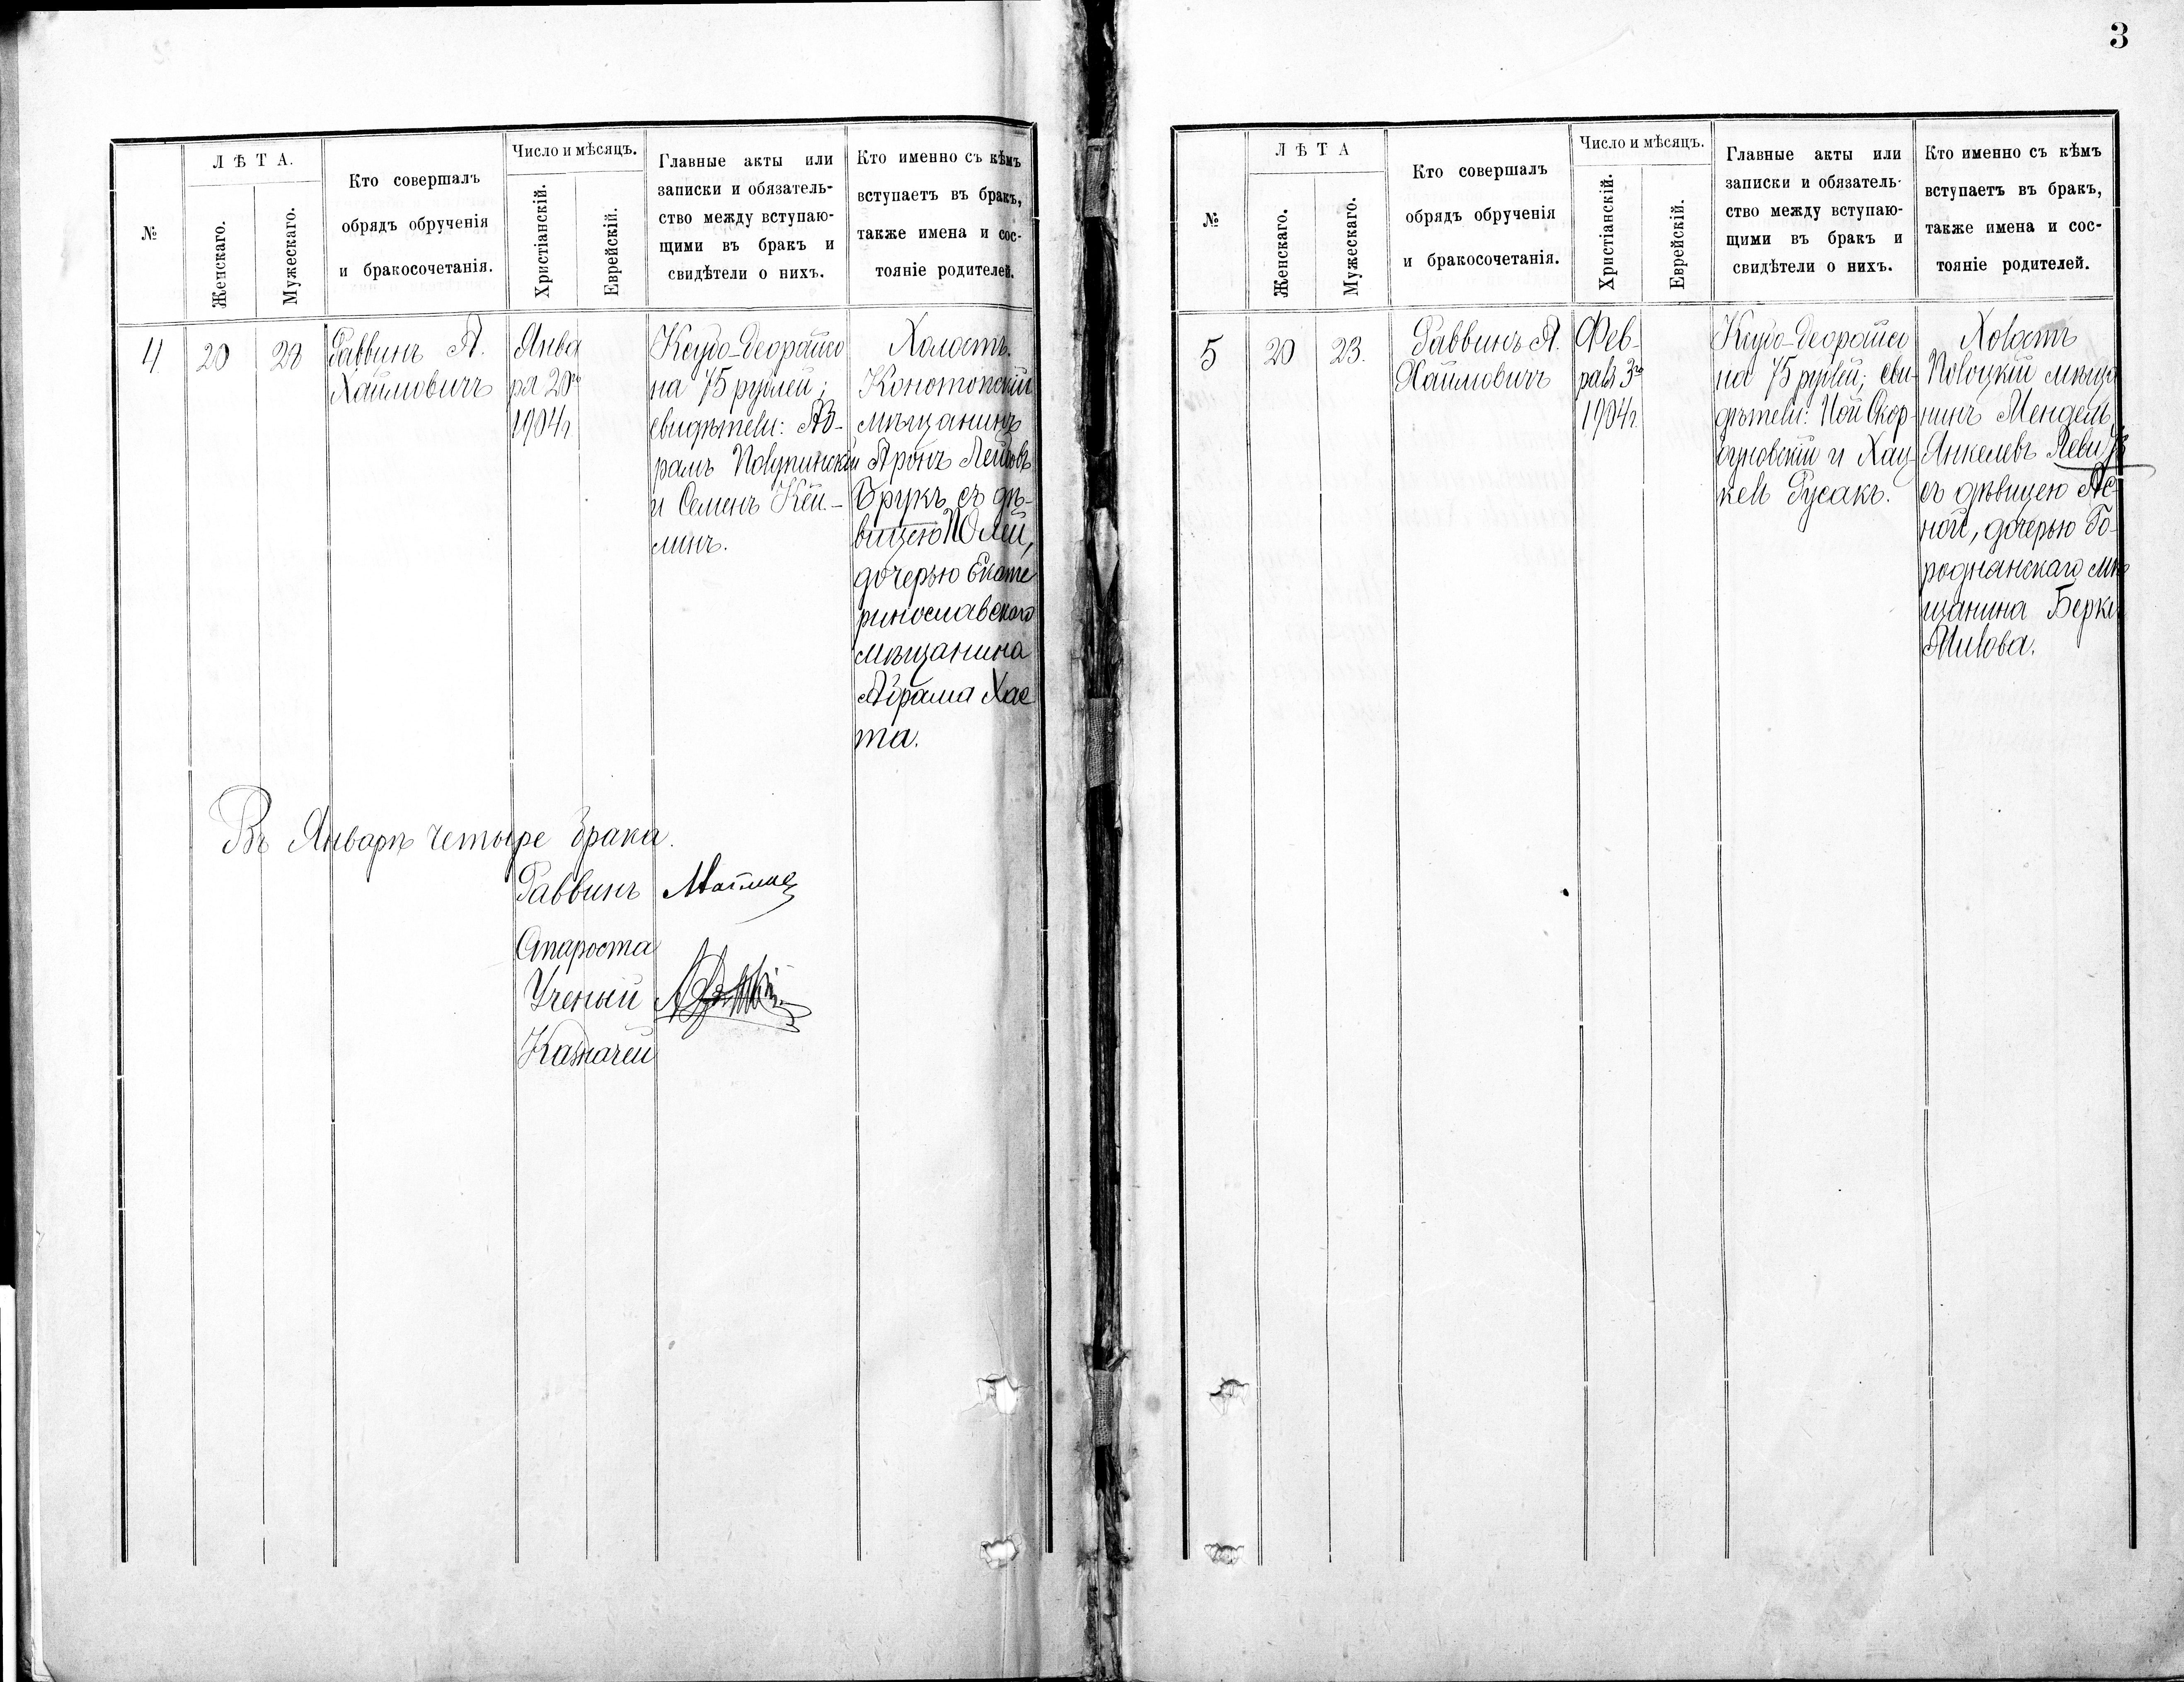 3
№
Л Ѣ Т А.
Женскаго.
Мужескаго.
Кто совершалъ
обрядъ обрученія
и бракосочетанія.
Число и мѣсяцъ.
Христіанскій.
Еврейскій.
Главные акты или
записки и обязатель-
ство между вступаю-
щими въ бракъ и
свидѣтели о нихъ.
Кто именно съ кѣмъ
вступаетъ въ бракъ,
также имена и сос-
тояніе родителей.
4
20
28
Раввинъ А.
Хаймовичъ
Янва
ря 20го
1904 г.
на 75 рублей;
свидѣтели: Аб-
рамъ
и Семенъ Кей-
линъ.
Холостъ.
Конотопскій
мѣщанинъ
Аронъ Лейбовъ
Брукъ съ дѣ-
вицею Юлей,
дочерью Екате
ринославскаго
мѣщанина
Абрама Хае
та.
Въ Январѣ четыре брака.
Раввинъ
Староста
Ученый
Казначей
№
Л Ѣ Т А
Женскаго.
Мужескаго.
Кто совершалъ
обрядъ обрученія
и бракосочетанія.
Число и мѣсяцъ.
Христіанскій.
Еврейскій.
Главные акты или
записки и обязатель-
ство между вступаю-
щими въ бракъ и
свидѣтели о нихъ.
Кто именно съ кѣмъ
вступаетъ въ бракъ,
также имена и сос-
тояніе родителей.
5
20
23.
Раввинъ А.
Хаймовичъ
Фев-
раля 3го
1904 г.
на 75 рублей; сви-
дѣтели:
и Хац
кель Русакъ.
Холостъ
Полоцкій мѣща
нинъ Мендель
Янкелевъ
съ дѣвицею Ас-
ной, дочерью Го-
роднянскаго мѣ
щанина Берки
Милова.